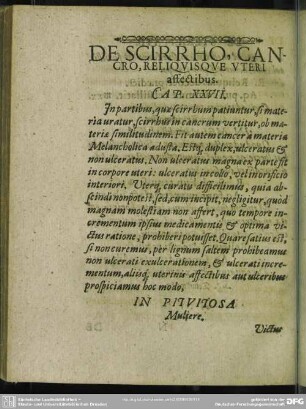 DE SCIRRHO, CAN-
CRO, RELIQVISQVE VTERI
affectibus.
CAP. XXVII.
In partibus, quæ scirrhum patiuntur, si mate-
ria uratur, scirrhus in cancrum vertitur, ob ma-
teriæ similitudinem. Fit autem cancer à materia
Melancholica adusta. Estq́; duplex, ulceratus &
non ulceratus. Non ulceratus magna ex parte sit
in corpore uteri: ulceratus in collo, vel in orificio
interiori. Uterq; curatu difficilimus, quia ab-
scindi non potest, sed, cum incipit, negligitur, quòd
magnam molestiam non affert, quo tempore in-
crementum ipsius medicamentis & optima vi-
ctus ratione, prohiberi potuisset. Quare satius est,
si non curemus, per lignum saltem prohibeamus
non ulcerati exulcerationem, & ulcerati incre-
mentum, aliisq́; uterinis affectibus aut ulceribus
prospiciamus hoc modo.
IN PITVITOSA
Muliere.
Victus